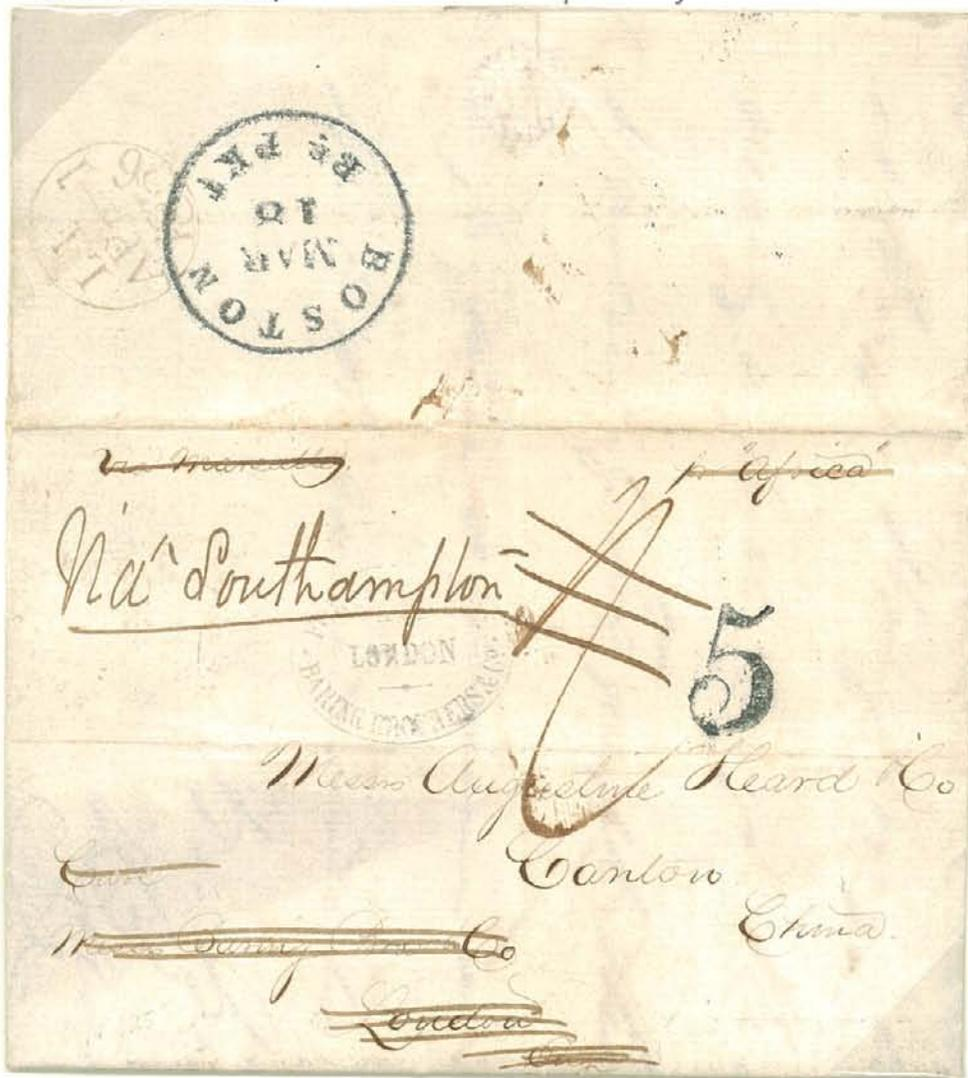 BOSTON Br PKT
MAR
18
"Africa"
Via Southampton
5
LONDON
BARING BROTHERS & CO
Messrs Augustine Heard & Co
Canton
China.
Care
Messrs Baring Bros & Co
London